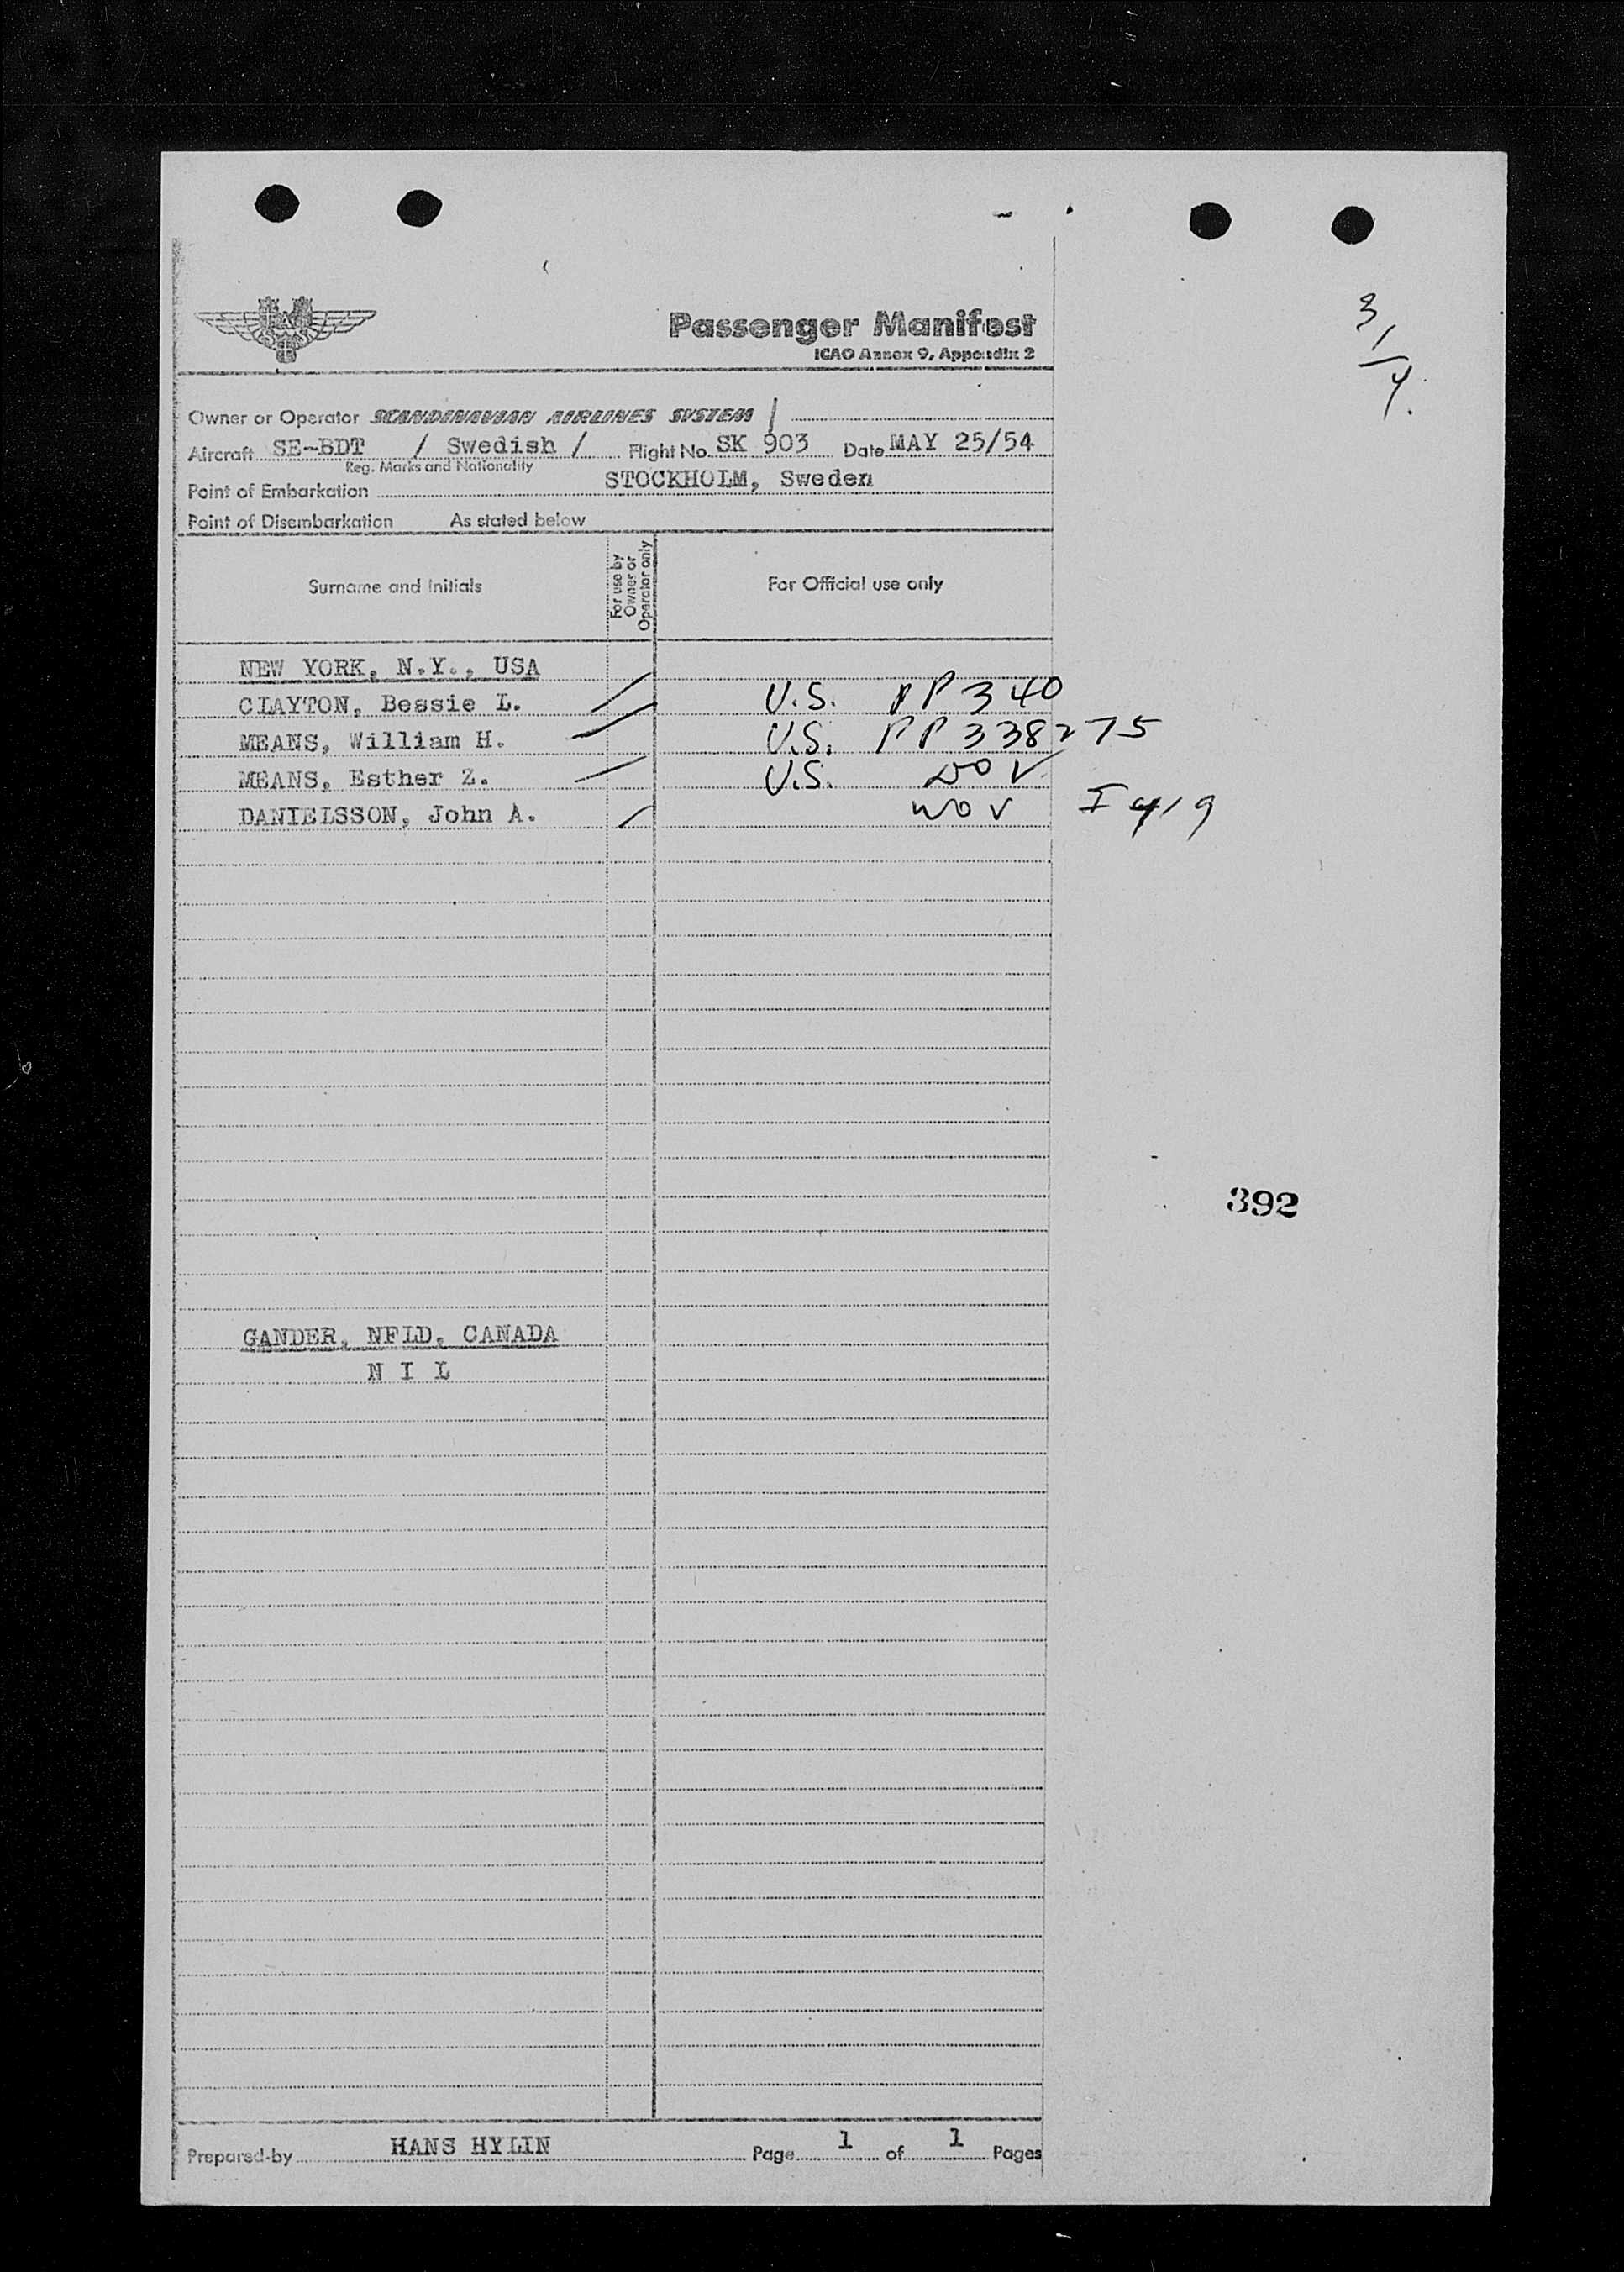 Passenger Manifest
ICAO Annex 9, Appendix 2
3/4.
Owner or Operator SCANDINAVIAN AIRLINES SYSTEM
Aircraft SE-BDT / Swedish / Flight No. SK 903 Date MAY 25/54
Reg. Marks and Nationality
Point of Embarkation STOCKHOLM, Sweden
Point of Disembarkation As stated below
Surname and Initials
For use by Owner or Operator only
For Official use only
NEW YORK, N.Y., USA
CLAYTON, Bessie L. U.S. PP 340
MEANS, William H. U.S. PP 338275
MEANS, Esther Z. U.S.
DANIELSSON, John A.
392
GANDER, NFLD, CANADA
N I L
Prepared by HANS HYLIN Page 1 of 1 Pages